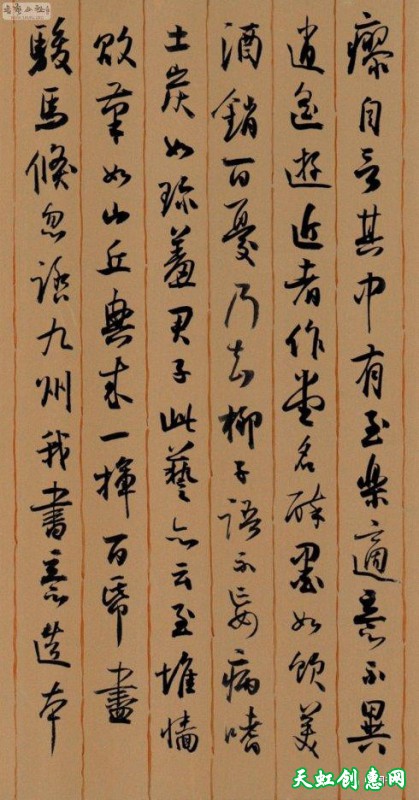 瘳自言其中有至樂適意不異
逍遙遊近者作堂名醉墨如飲美
酒銷百憂乃知柳子語不妄病嗜
土炭如珍羞君子此藝亦云至堆墻
敗筆如山丘興來一揮百帋盡
駿馬倏忽踏九州我書意造本
天虹创意网